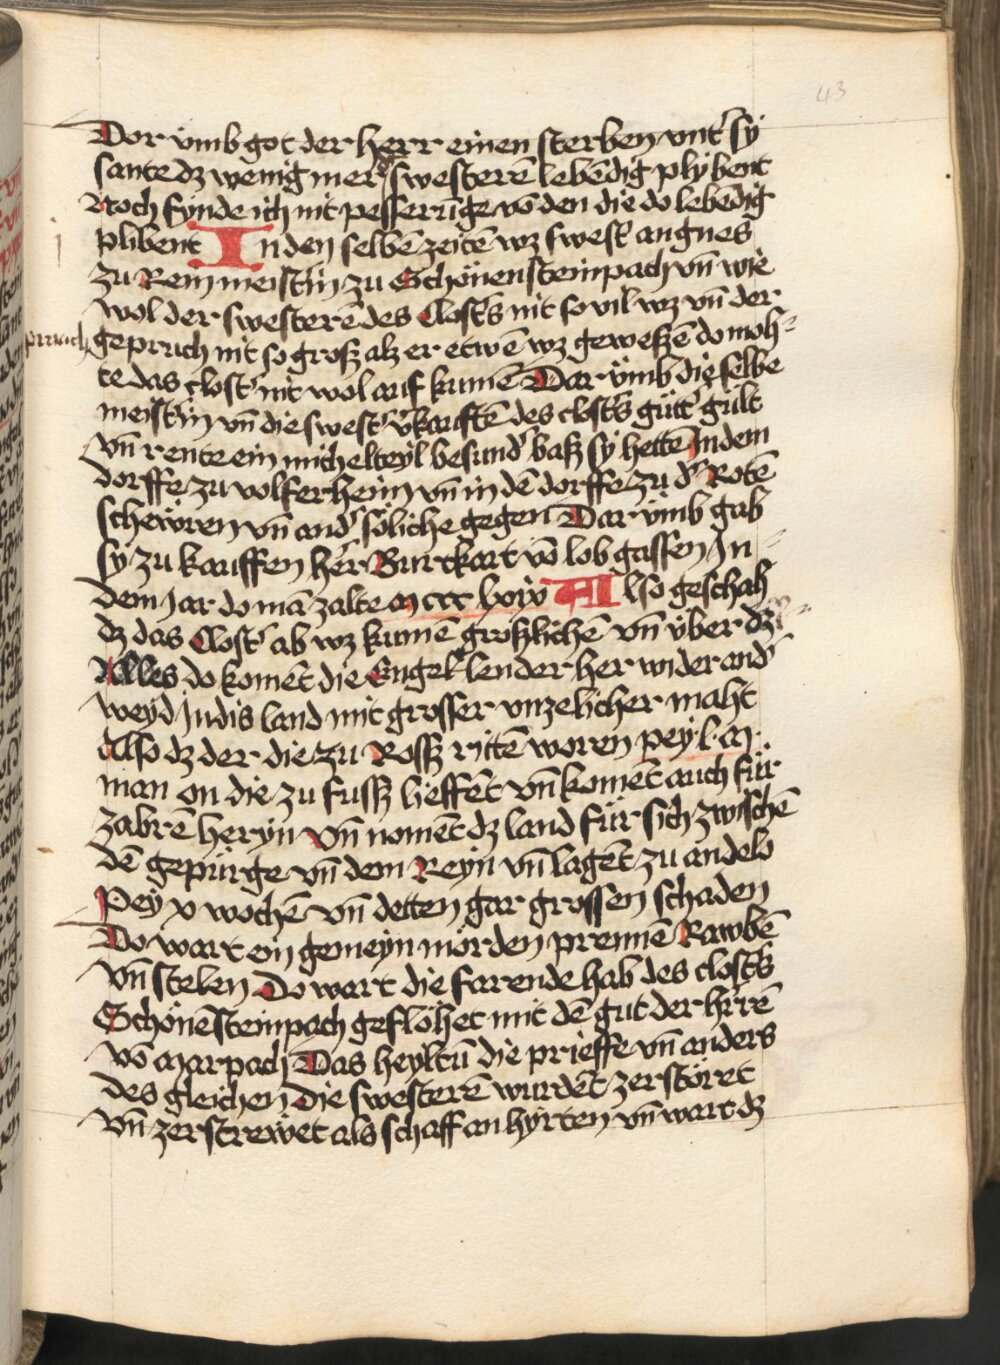 43
Dor vmb got der herr einen sterben vnt' sÿ
sante dz wenig mer swesterē lebēdig plybent
Noch fynde ich nit pesserūge vō den die do lebēdig
plibent In den selbē zeitē wz swest' angnes
zu Rein meist'in zu Schönensteinpach vn̄ wie
wol der swesterē des Clost's nit so vil wz vn̄ der
gepruch nit so grosz alz er etwē wz geweszē do moh-
te das clost' nit wol auf kumē Dar vmb die selbe
meist'in vn̄ die swest' v'kaufftē des clost's gütt' gült
vn̄ rente ein michelteyl besund' basz sy hettē Jn dem
dorffe zu volferheim vn̄ in dē dorffe zu d' Rotē
schewren vn̄ and' söliche gegen Dar vmb gab
sÿ zu kauffen her Burckart vō lobgassen Jn
dem Jar do mā zalte m ccc lxxv Also geschah
dz das Clost' ab wz kumē groszlichē vn̄ vber dz
Alles do komēt die Engellender her wider and'
weyd Jn dis land mit grosser vnzelicher maht
Also dz der die zu Rossz rittē woren pey l. m.
man on die zu fussz lieffēt vn̄ komēt auch für
zabrē herÿn vn̄ nomēt dz land für sich zwischē
dē gepürge vn̄ dem Reyn vn̄ lagēt zu andelo
Pey x wochē vn̄ detten gar grossen schaden
Do wart ein gemeyn mörden prennē Rawbē
vn̄ stelen Do wart die farende hab des clost's
Schönēsteinpach geflöhet mit dē gut der h'rrē
vō marpach Das heyltū die prieffe vn̄ anders
des gleichen Die swesterē wurdēt zerstöret
vn̄ zerstrewet als schaff an hyrten vn̄ wart dz